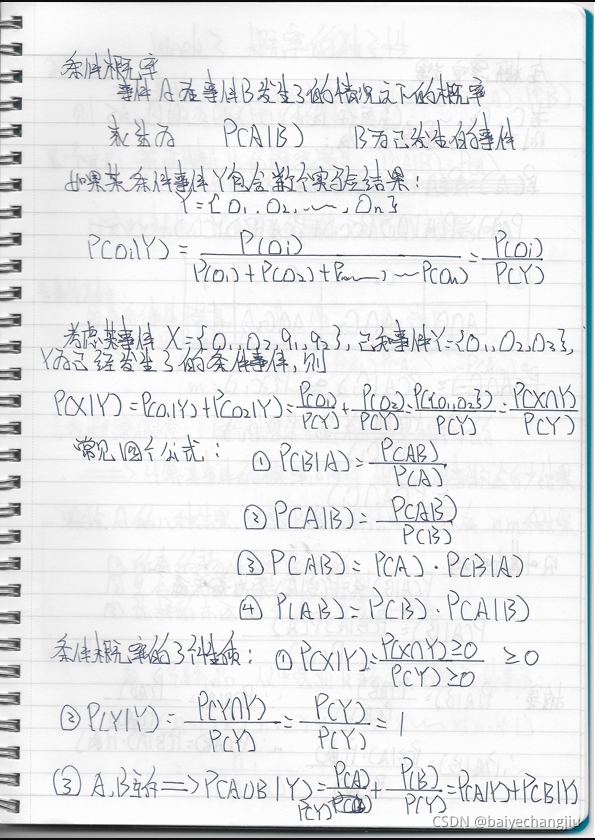 条件概率
事件A在事件B发生了的情况之下的概率
表示为 P(A|B) B为已发生的事件
如果某条件事件Y包含数个实验结果:
Y={O1,O2,……,On}
P(Oi|Y)=P(Oi)/(P(O1)+P(O2)+……P(On))=P(Oi)/P(Y)
考虑某事件X={O1,O2,q1,q2},已知事件Y={O1,O2,O3},
Y为已经发生了的条件事件,则
P(X|Y)=P(O1|Y)+P(O2|Y)=P(O1)/P(Y)+P(O2)/P(Y)=P({O1,O2})/P(Y)=P(X∩Y)/P(Y)
常见四个公式: ① P(B|A)=P(AB)/P(A)
② P(A|B)=P(AB)/P(B)
③ P(AB)=P(A)·P(B|A)
④ P(AB)=P(B)·P(A|B)
条件概率的3个性质: ① P(X|Y)=P(X∩Y)≥0/P(Y)≥0 ≥0
② P(Y|Y)=P(Y∩Y)/P(Y)=P(Y)/P(Y)=1
③ A,B互斥=>P(A∪B|Y)=P(A)/P(Y)+P(B)/P(Y)=P(A|Y)+P(B|Y)
CSDN @baiyechangjiu